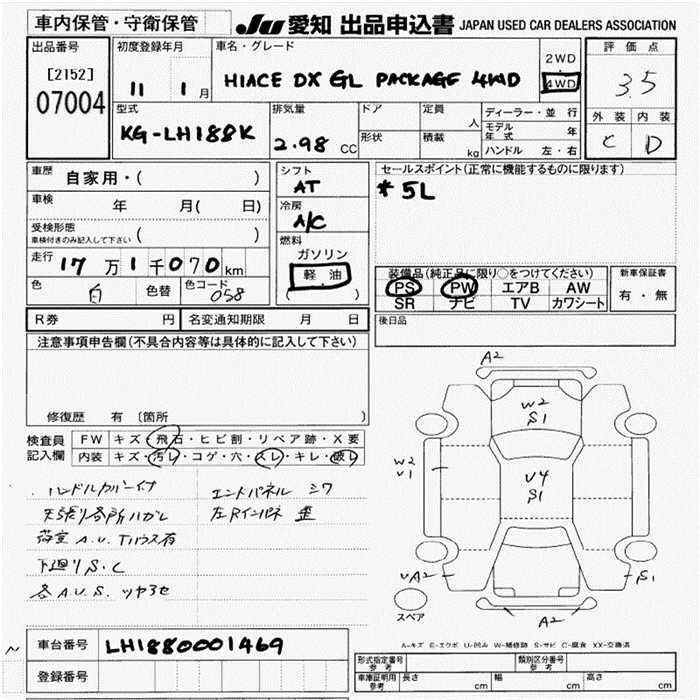 車内保管・守衛保管
JU 愛知 出品申込書 JAPAN USED CAR DEALERS ASSOCIATION
出品番号
[2152]
07004
初度登録年月
11 1月
車名・グレード
HIACE DX GL PACKAGE 4WD
2WD
4WD
評価点
3.5
外装 内装
C D
型式
KG-LH188K
排気量
2.98 CC
ドア
形状
定員 人
積載 kg
ディーラー・並行
モデル年式 年
ハンドル 左・右
車歴 自家用・( )
車検 年 月( 日)
受検形態
車検付きのみ記入して下さい ( )
走行 17万1千070km
色 白 色替 色コード 058
シフト
AT
冷房
A/C
燃料
ガソリン
軽油
( )
セールスポイント(正常に機能するものに限ります)
*5L
装備品(純正品に限り○をつけてください)
PS PW エアB AW
SR ナビ TV カワシート
新車保証書
有・無
R券 円 名変通知期限 月 日
後日品
注意事項申告欄(不具合内容等は具体的に記入して下さい)
修復歴 有 〔箇所 〕
検査員
記入欄
FW キズ・飛石・ヒビ割・リペア跡・X要
内装 キズ・汚レ・コゲ・穴・スレ・キレ・破レ
ハンドルカバー付
エンドパネル シワ
天張り各所ハガレ
左Rインパネ 歪
荷室 A.U. Tハウス有
下廻りS.C
各A.U.S.
A2
W2
S1
W2
U1
U4
S1
UA2
S1
A2
スペア
A-キズ E-エクボ U-凹み W-補修跡 S-サビ C-腐食 XX-交換済
車台番号 LH1880001469
登録番号
型式指定番号
参考
類別区分番号
参考
車庫証明用
参考
長さ cm 幅 cm 高さ cm